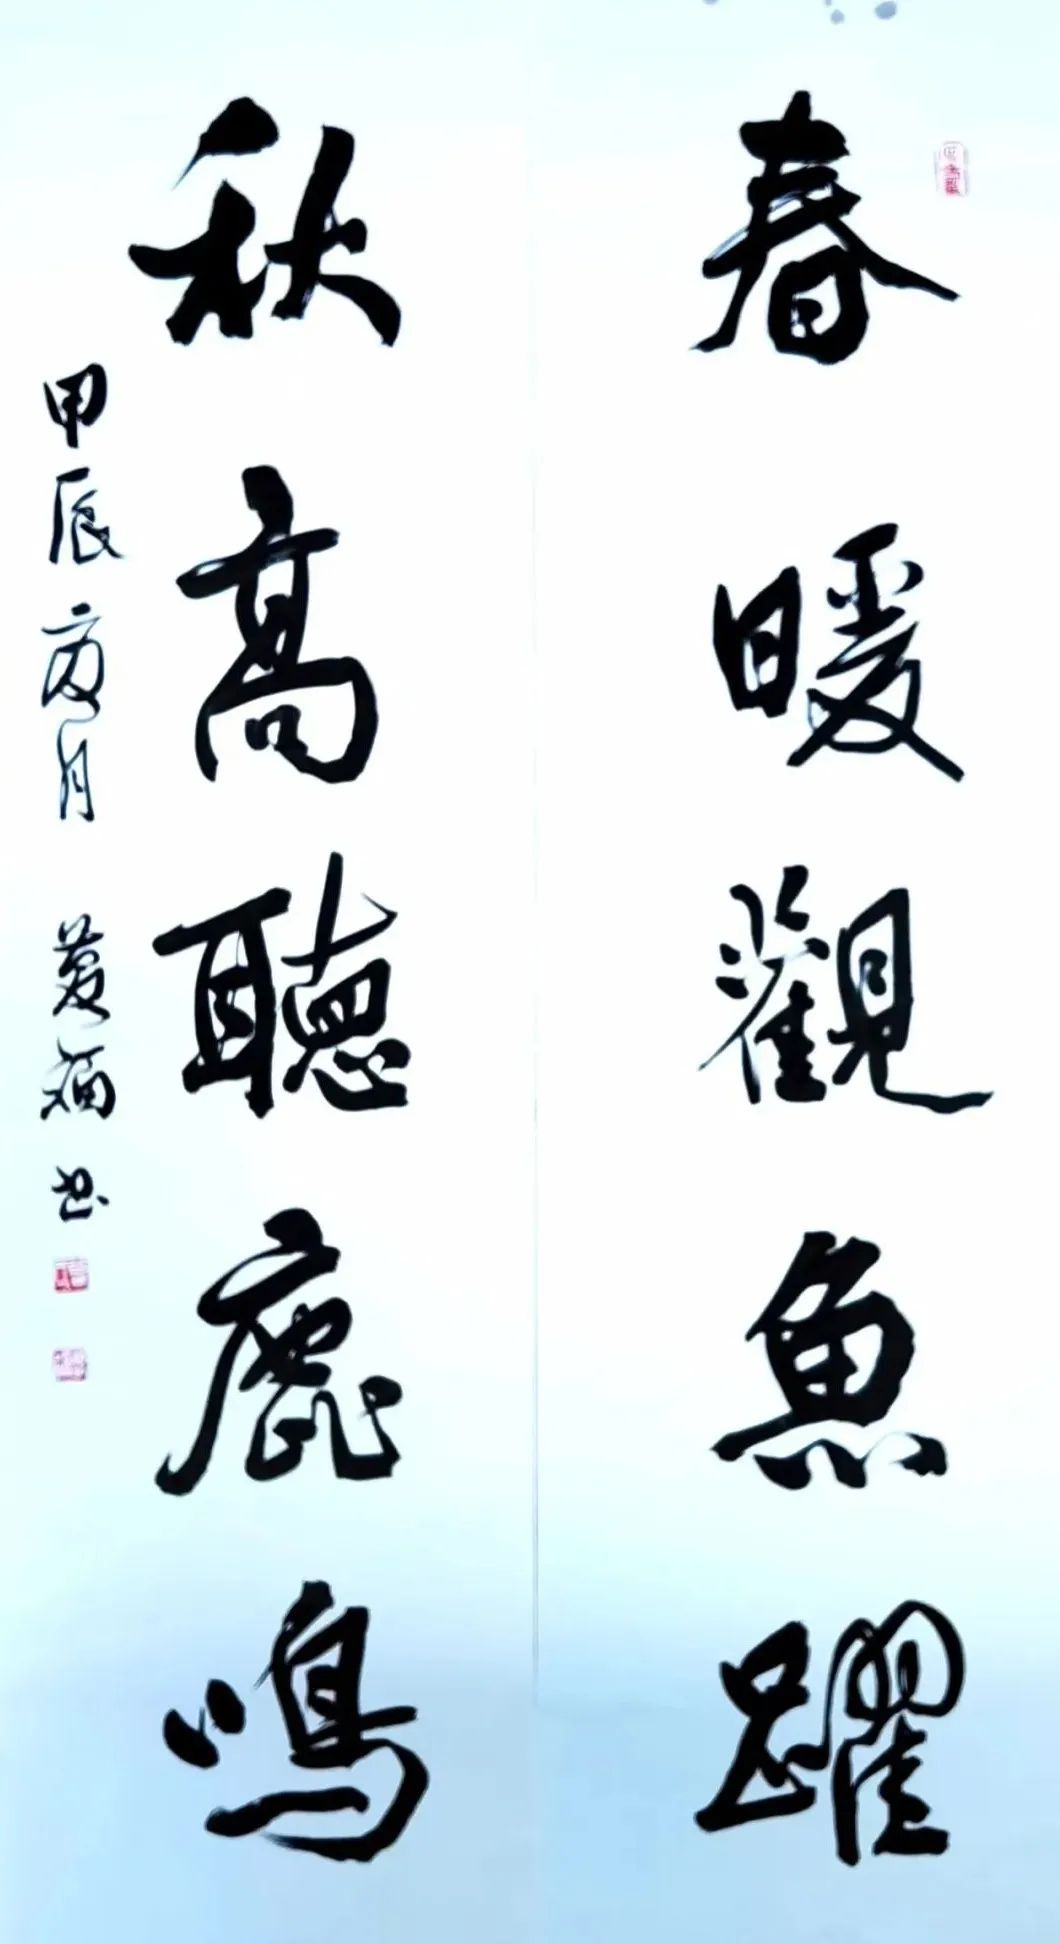 春暖觀魚躍
秋高聽鹿鳴
甲辰 月 書